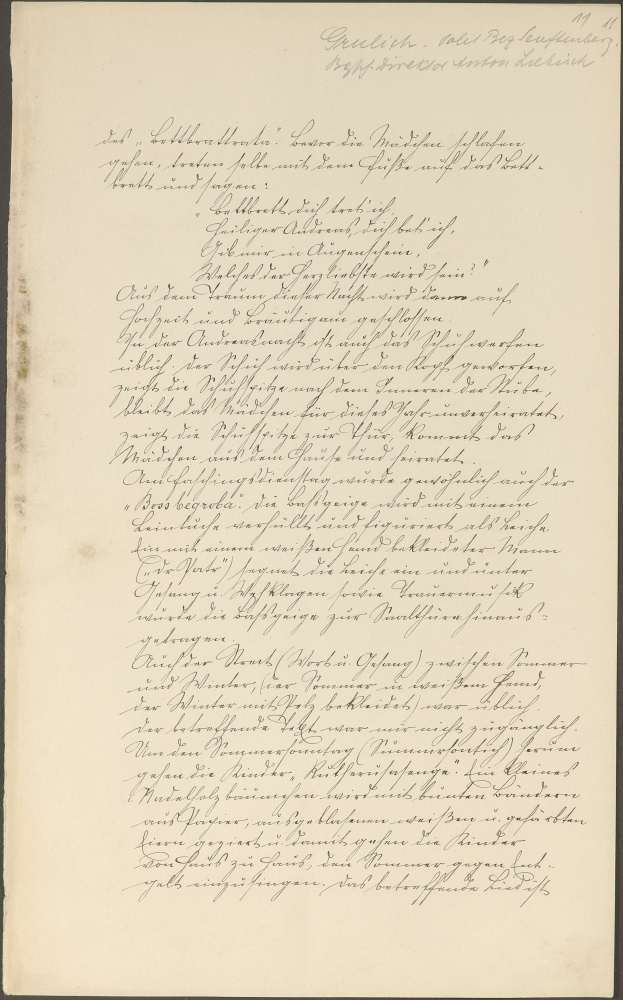 11 11
Grulich. polit Bez Senftenberg.
Bgsch. Direktor Anton Liebich
des „Bettbrattrata“. Bevor die Mädchen schlafen
gehen, treten selbe mit dem Fuße auf das Bett-
brett und sagen:
„Bettbrett, dich tret' ich,
Heiliger Andreas, dich bet' ich,
Gib mir in Augenschein,
Welches der Herzliebste wird sein?“
Aus dem Traum dieser Nacht wird dann auf
Hochzeit und Bräutigam geschlossen.
In der Andreasnacht ist auch das Schuhwerfen
üblich. Der Schuh wird über den Kopf geworfen,
zeigt die Schuhspitze nach dem Inneren der Stube,
bleibt das Mädchen für dieses Jahr unverheiratet,
zeigt die Schuhspitze zur Thür, kommt das
Mädchen aus dem Hause und heiratet.
Am Faschingsdienstag wurde gewöhnlich auch der
„Boss begroba“. Die Bassgeige wird mit einem
Leintuche verhüllt und figuriert als Leiche.
Ein mit einem weißen Hemd bekleideter Mann
(„Dr Patr“) segnet die Leiche ein und unter
Gesang u. Wehklagen sowie Trauermusik
wurde die Bassgeige zur Saalthüre hinaus-
getragen.
Auch der Streit (Wort u. Gesang) zwischen Sommer
und Winter, (der Sommer in weißem Hemd,
der Winter mit Pelz bekleidet) war üblich.
Der betreffende Text war mir nicht zugänglich.
Um den Sommersonntag (Summersontich) herum
gehen die Kinder „ “. Ein kleines
Nadelholzbäumchen wird mit bunten Bändern
aus Papier, ausgeblasenen weißen u. gefärbten
Eiern geziert u. damit gehen die Kinder
von Haus zu Haus, den Sommer gegen Ent-
gelt einzusingen. Das betreffende Lied ist